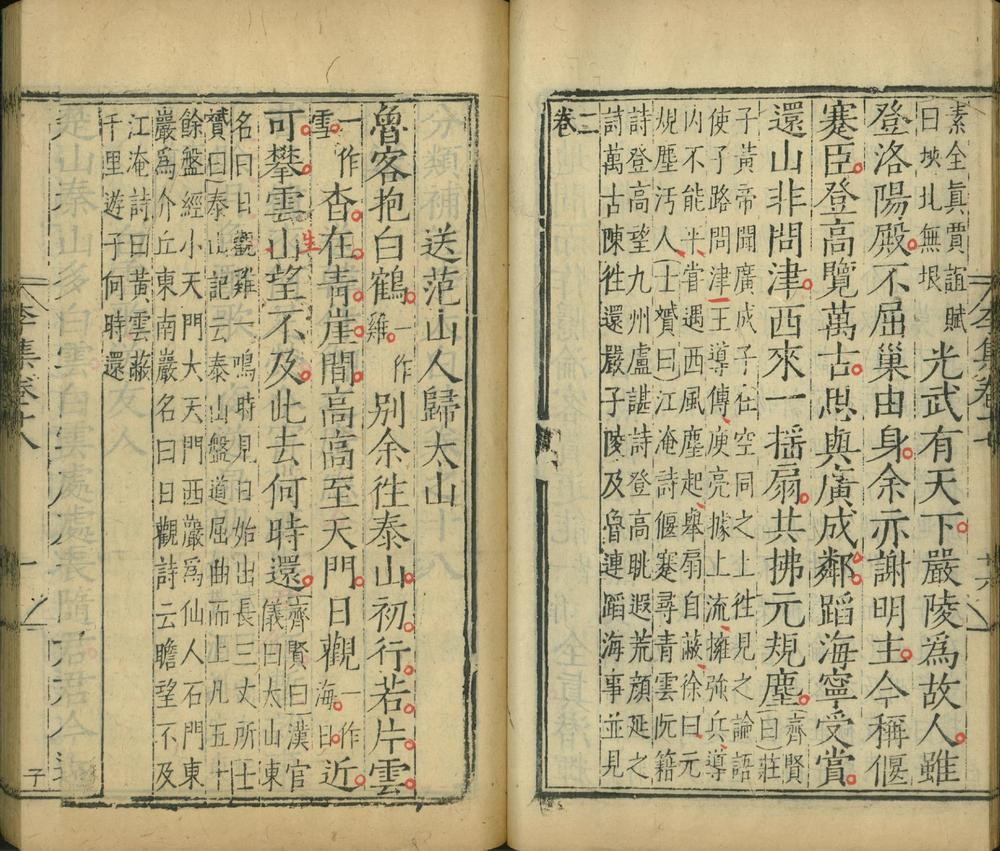 素全真賈誼賦
曰坱圠無垠
光武有天下嚴陵爲故人雖
登洛陽殿不屈巢由身余亦謝明主今稱偃
蹇臣登高覽萬古思與廣成鄰蹈海寧受賞
還山非問津西來一揺扇共拂元規塵
齊賢
曰莊
子黃帝聞廣成子在空同之上徃見之論語
使子路問津王導傳庾亮據上流擁強兵導
内不能平甞遇西風塵起舉扇自蔽徐曰元
規塵汚人士贇曰江淹詩偃蹇尋青雲阮籍
詩登高望九州盧諶詩登高眺遐荒顔延之
詩萬古陳徃還嚴子陵及魯連蹈海事並見
二
卷
送范山人歸太山
魯客抱白鶴
一作
雞
别余徃泰山初行若片雲
一作
雪
杳在青崖間高高至天門日觀
一作
海日
近
可攀雲山
生
望不及此去何時還
齊賢曰漢官
儀曰太山東
名曰日觀雞鳴時見日始出長三丈所士
贇曰泰山記云泰山盤道屈曲而上凡五十
餘盤經小天門大天門西巖爲仙人石門東
巖爲介丘東南巖名曰日觀詩云瞻望不及
江淹詩曰黃雲蔽
千里遊子何時還